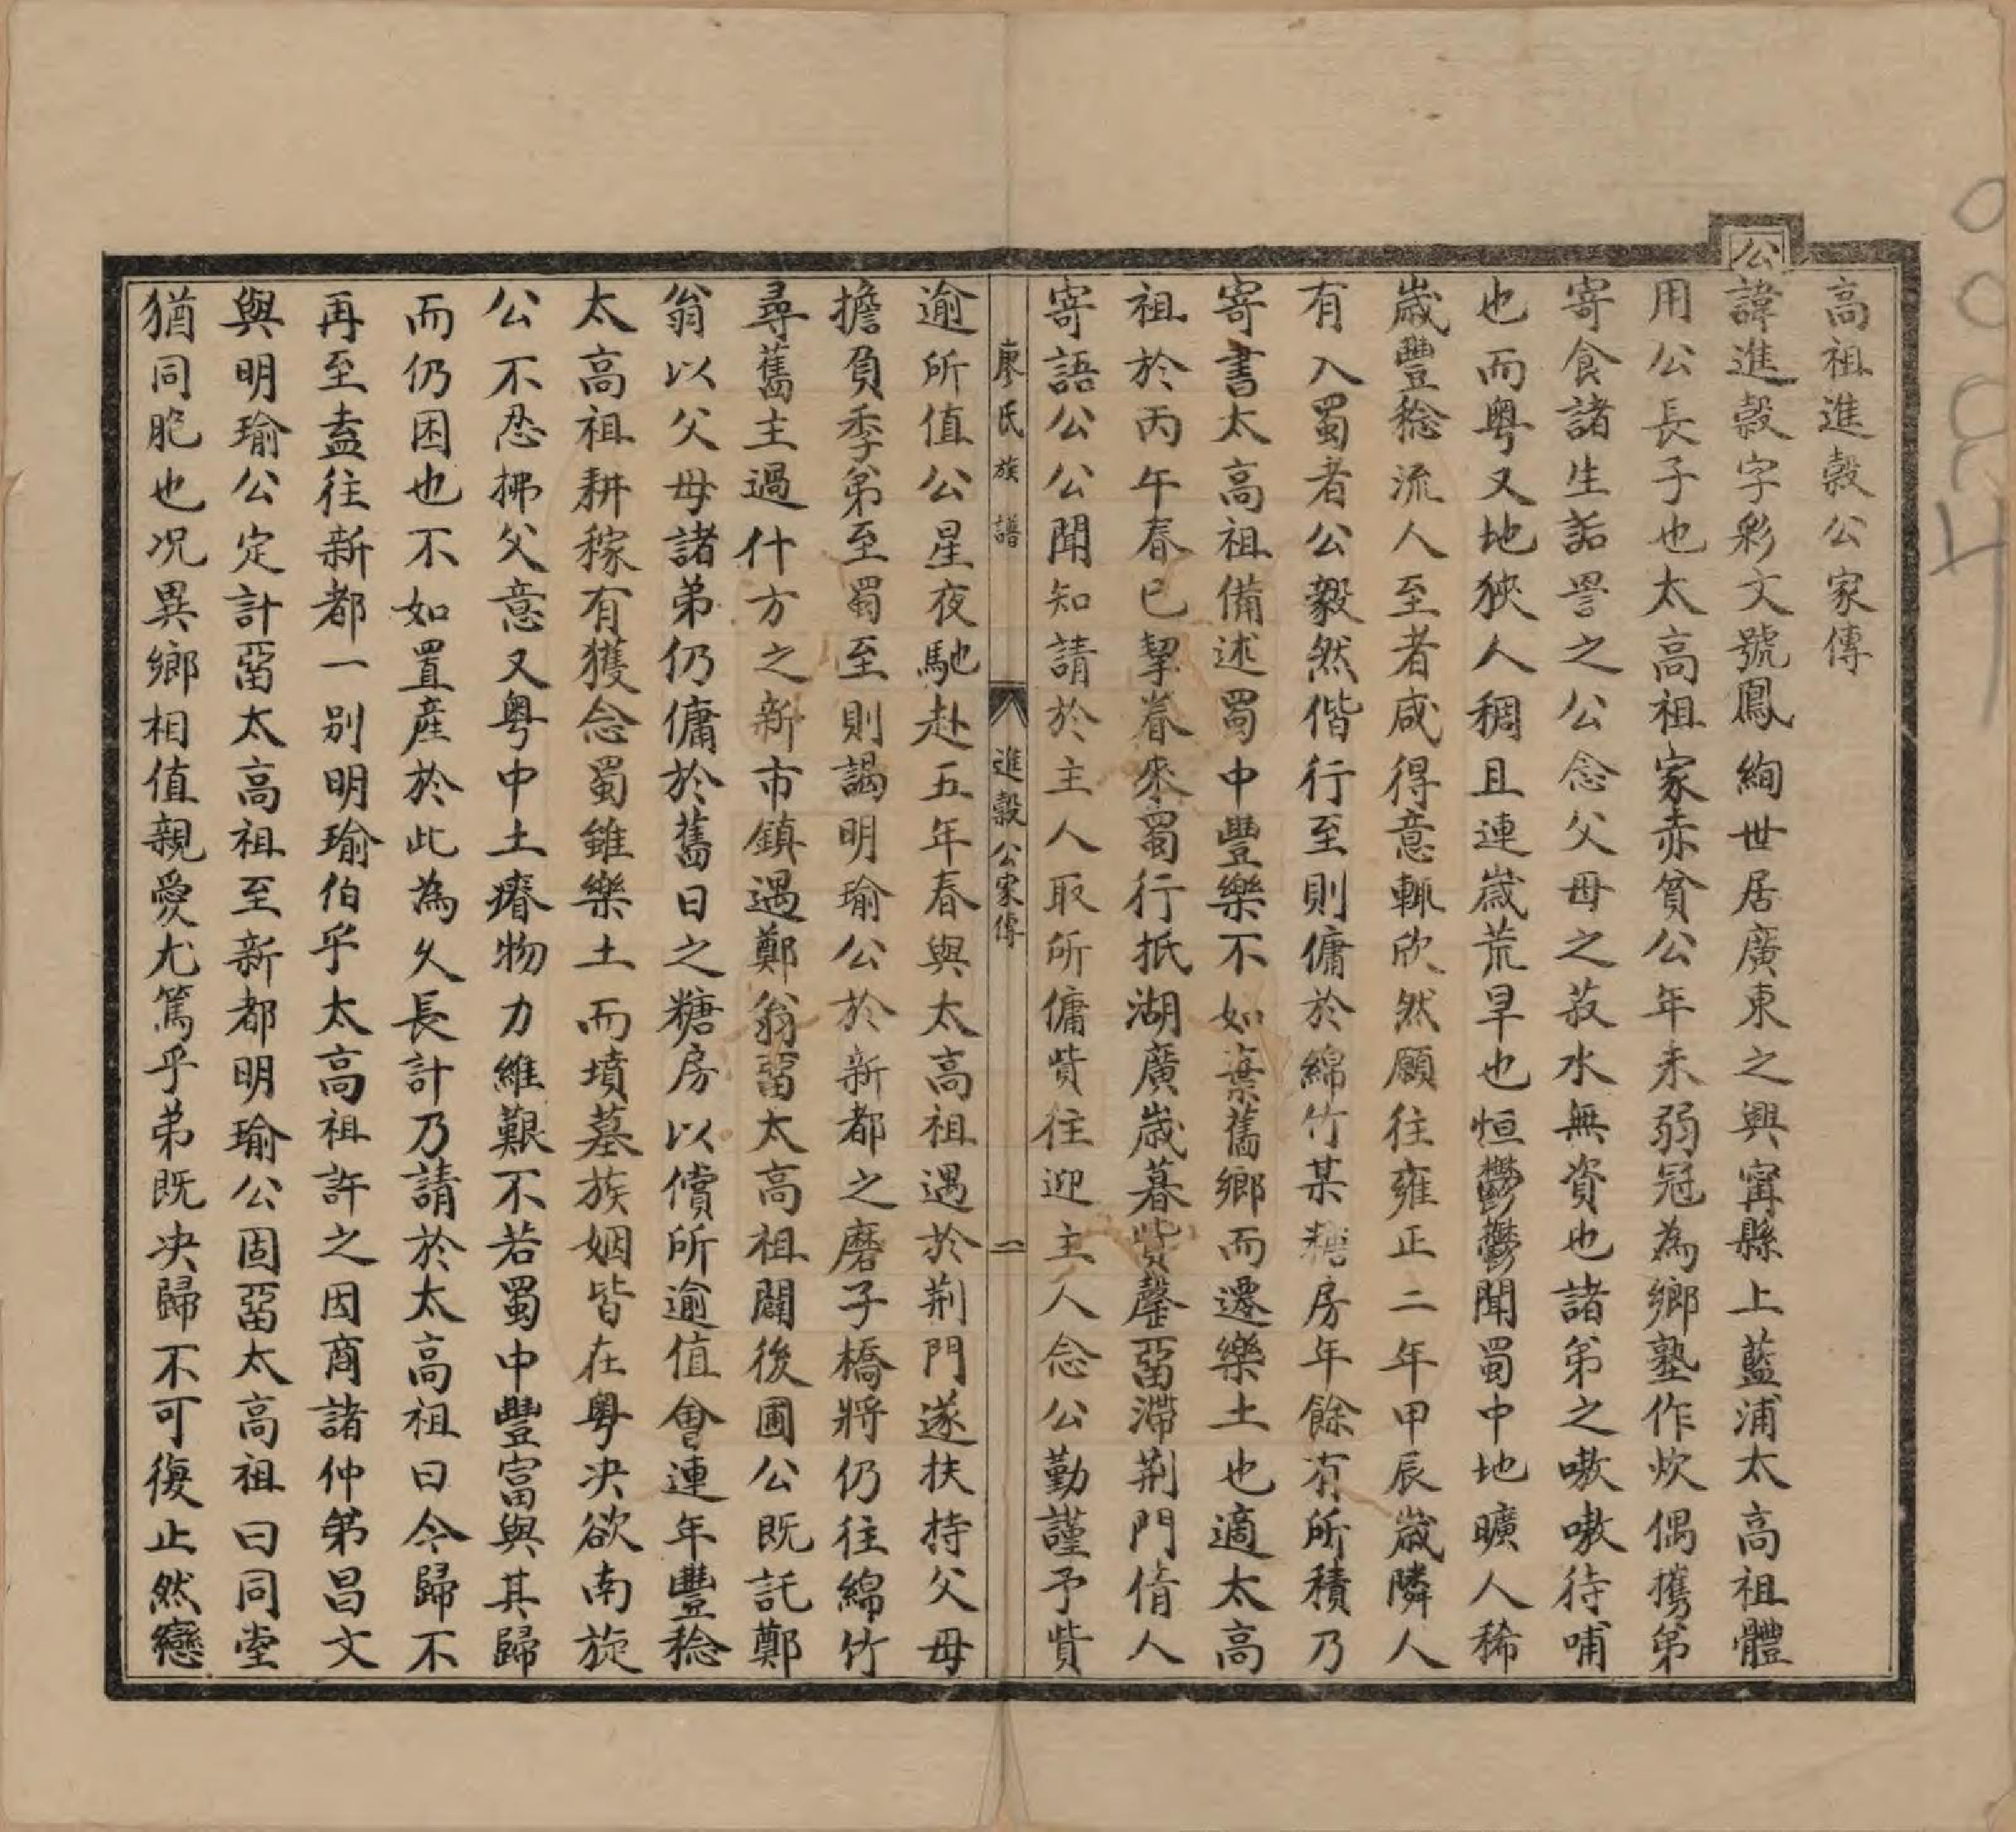 高祖進穀公家傳
公諱進穀字彩文號鳳絢世居廣東之興甯縣上藍浦太高祖體
用公長子也太高祖家赤貧公年未弱冠為鄉塾作炊偶攜弟
寄食諸生詬詈之公念父母之菽水無資也諸弟之嗷嗷待哺
也而粵又地狹人稠且連歲荒旱也恒鬱鬱聞蜀中地曠人稀
歲豐稔流人至者咸得意輒欣然願往雍正二年甲辰歲隣人
有入蜀者公毅然偕行至則傭於綿竹某糖房年餘有所積乃
寄書太高祖備述蜀中豐樂不如棄舊鄉而遷樂土也適太高
祖於丙午春已挈眷來蜀行抵湖廣歲暮貲罄畱滯荆門倩人
寄語公公聞知請於主人取所傭貲往迎主人念公勤謹予貲
廖氏族譜
進穀公家傳
二
逾所值公星夜馳赴五年春與太高祖遇於荆門遂扶持父母
擔負季弟至蜀至則謁明瑜公於新都之磨子橋將仍往綿竹
尋舊主過什方之新市鎮遇鄭翁畱太高祖闢後圃公既託鄭
翁以父母諸弟仍傭於舊日之糖房以償所逾值會連年豐稔
太高祖耕稼有獲念蜀雖樂土而墳墓族姻皆在粵决欲南旋
公不忍拂父意又粵中土瘠物力維艱不若蜀中豐富與其歸
而仍困也不如置產於此為久長計乃請於太高祖曰今歸不
再至盍往新都一別明瑜伯乎太高祖許之因商諸仲弟昌文
與明瑜公定計畱太高祖至新都明瑜公固畱太高祖曰同堂
猶同胞也况異鄉相值親愛尤篤乎弟既决歸不可復止然戀